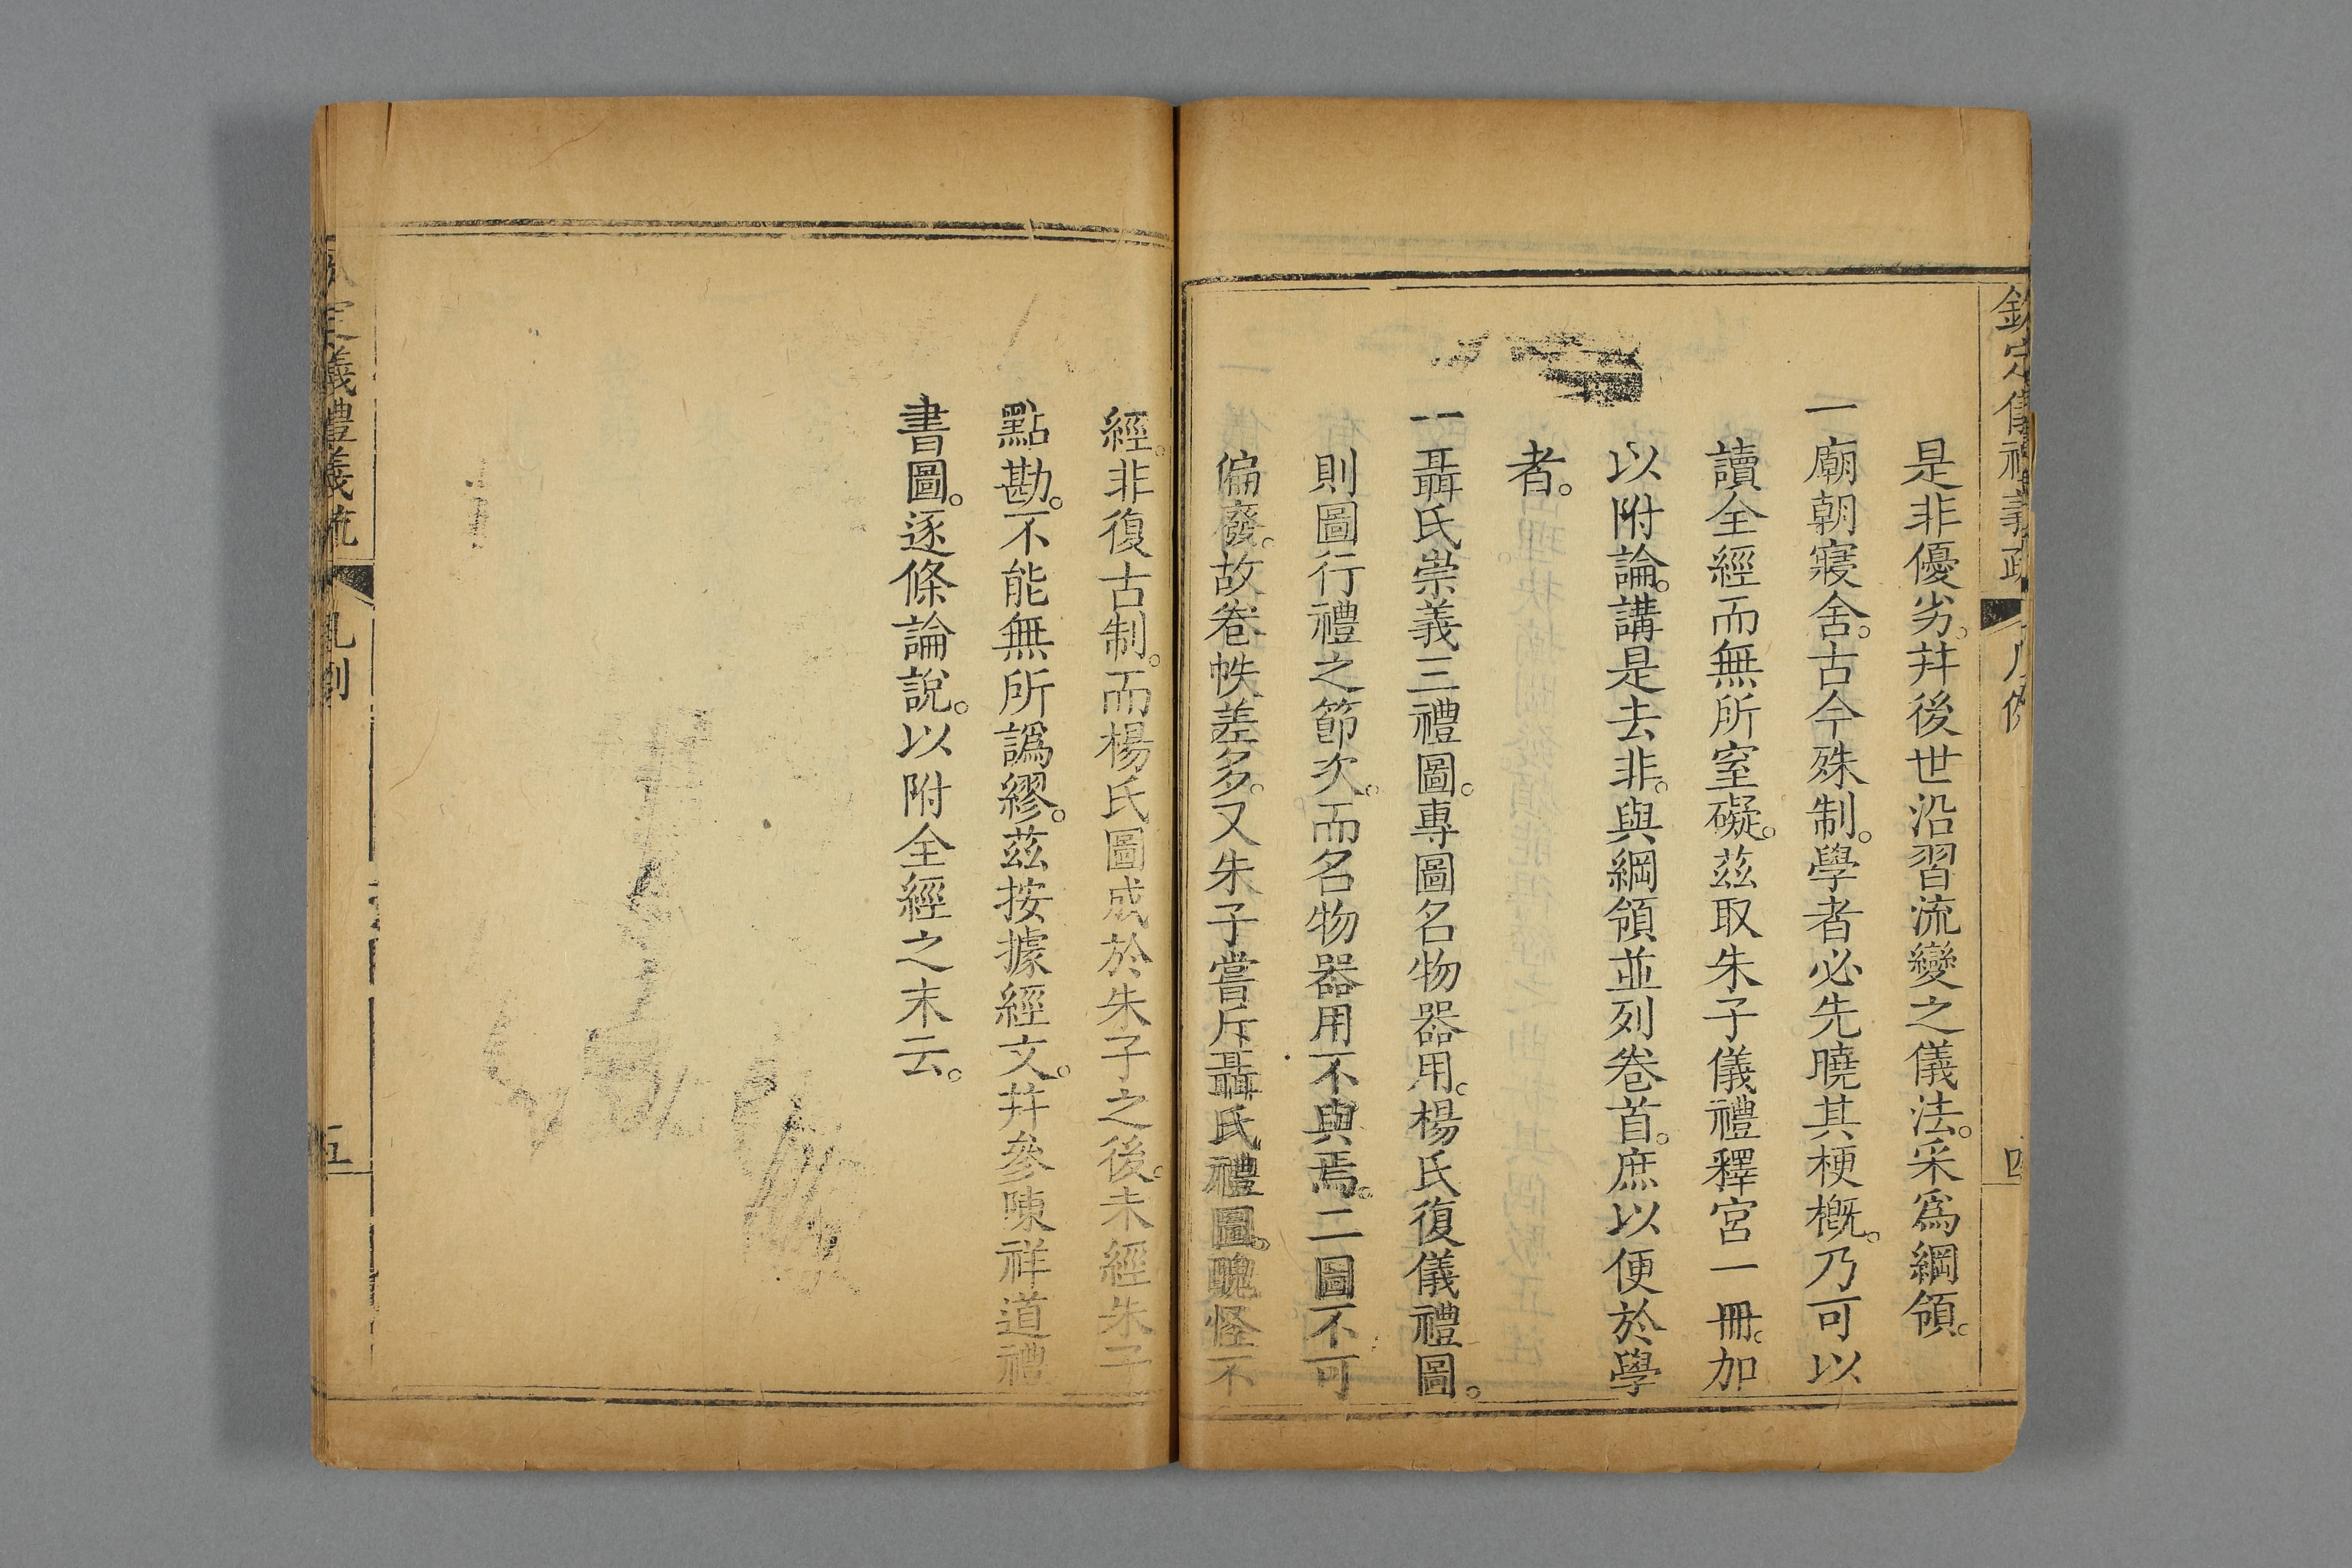 欽定儀禮義疏 凡例 四
是非優劣。幷後世沿習流變之儀法。采爲綱領。
一廟朝寢舍。古今殊制。學者必先曉其梗槪。乃可以
讀全經而無所窒礙。茲取朱子儀禮釋宮一冊。加
以附論。講是去非。與綱領並列卷首。庶以便於學
者。
一聶氏崇義三禮圖。專圖名物器用。楊氏復儀禮圖。
則圖行禮之節次。而名物器用不與焉。二圖不可
偏廢。故卷帙差多。又朱子嘗斥聶氏禮圖。醜怪不
經。非復古制。而楊氏圖成於朱子之後。未經朱子
點勘。不能無所譌繆。茲按據經文。幷參陳祥道禮
書圖。逐條論說。以附全經之末云。
欽定儀禮義疏 凡例 五